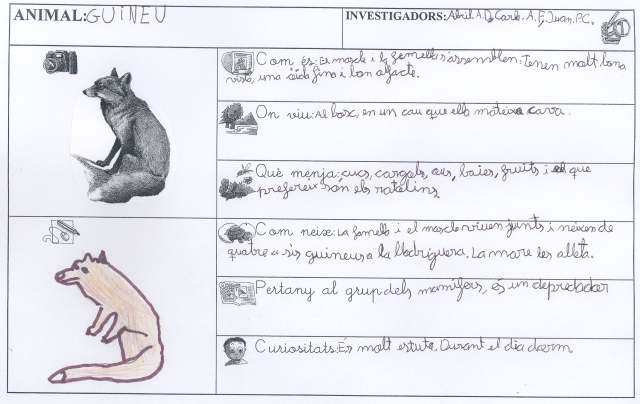 ANIMAL: GUINEU
INVESTIGADORS: Abril. A.D, Carla. A. F, Juan. P.C.
Com és: El mascle i la femella s'assemblen, tenen molt bona
vista, una oida fina i bon olfacte.
On viu: Al bosc, en un cau que ella mateixa cava.
Què menja: cucs, cargols, ous, baies, fruits i el que
prefereix són els ratolins
Com neix: La femella i el mascle viuen junts i neixen de
quatre a sis guineus a la lludriguera. La mare les alleta.
Pertany al grup dels mamifers, és un depredador
Curiositats: És molt estuta, Durant el dia dorm